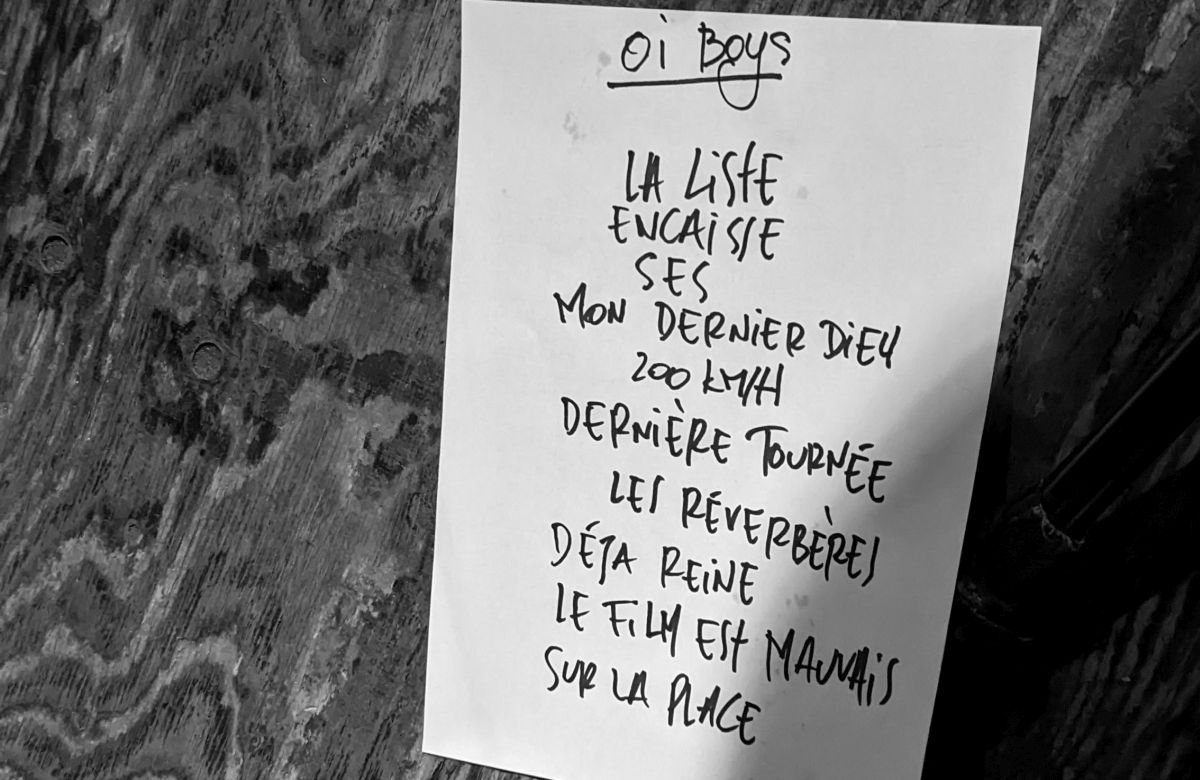 Oi Boys
LA LiSTE
ENCAiSSE
SES
MON DERNIER DiEU
200 KM/H
DERNiÈRE TOURNÉE
LES RÉVERBÈRES
DÉJA REiNE
LE FiLM EST MAUVAiS
SUR LA PLACE